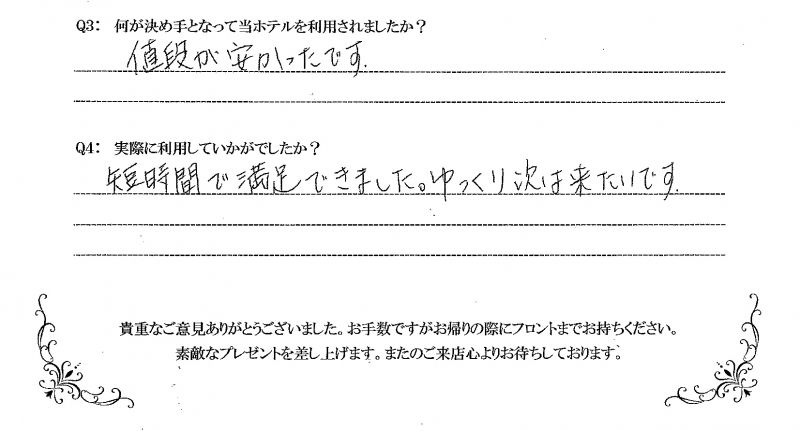 Q3: 何が決め手となって当ホテルを利用されましたか?
値段が安かったです.
Q4: 実際に利用していかがでしたか?
短時間で満足できました。ゆっくり次は来たいです.
貴重なご意見ありがとうございました。お手数ですがお帰りの際にフロントまでお持ちください。
素敵なプレゼントを差し上げます。またのご来店心よりお待ちしております。